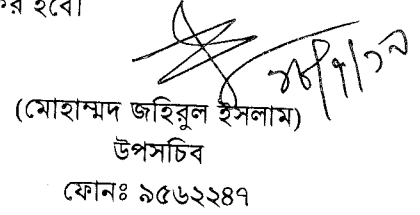 হবে।
(মোহাম্মদ জহিরুল ইসলাম)
উপসচিব
ফোনঃ ৯৫৬২২৪৭